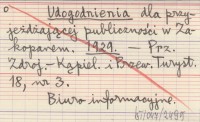 Udogodnienia dla przy-
jeżdżającej publiczności w Za-
kopanem. 1929. — Prz.
Zdroj.-Kąpiel. i Przew. Turyst.
18, nr 3.
Biuro informacyjne.